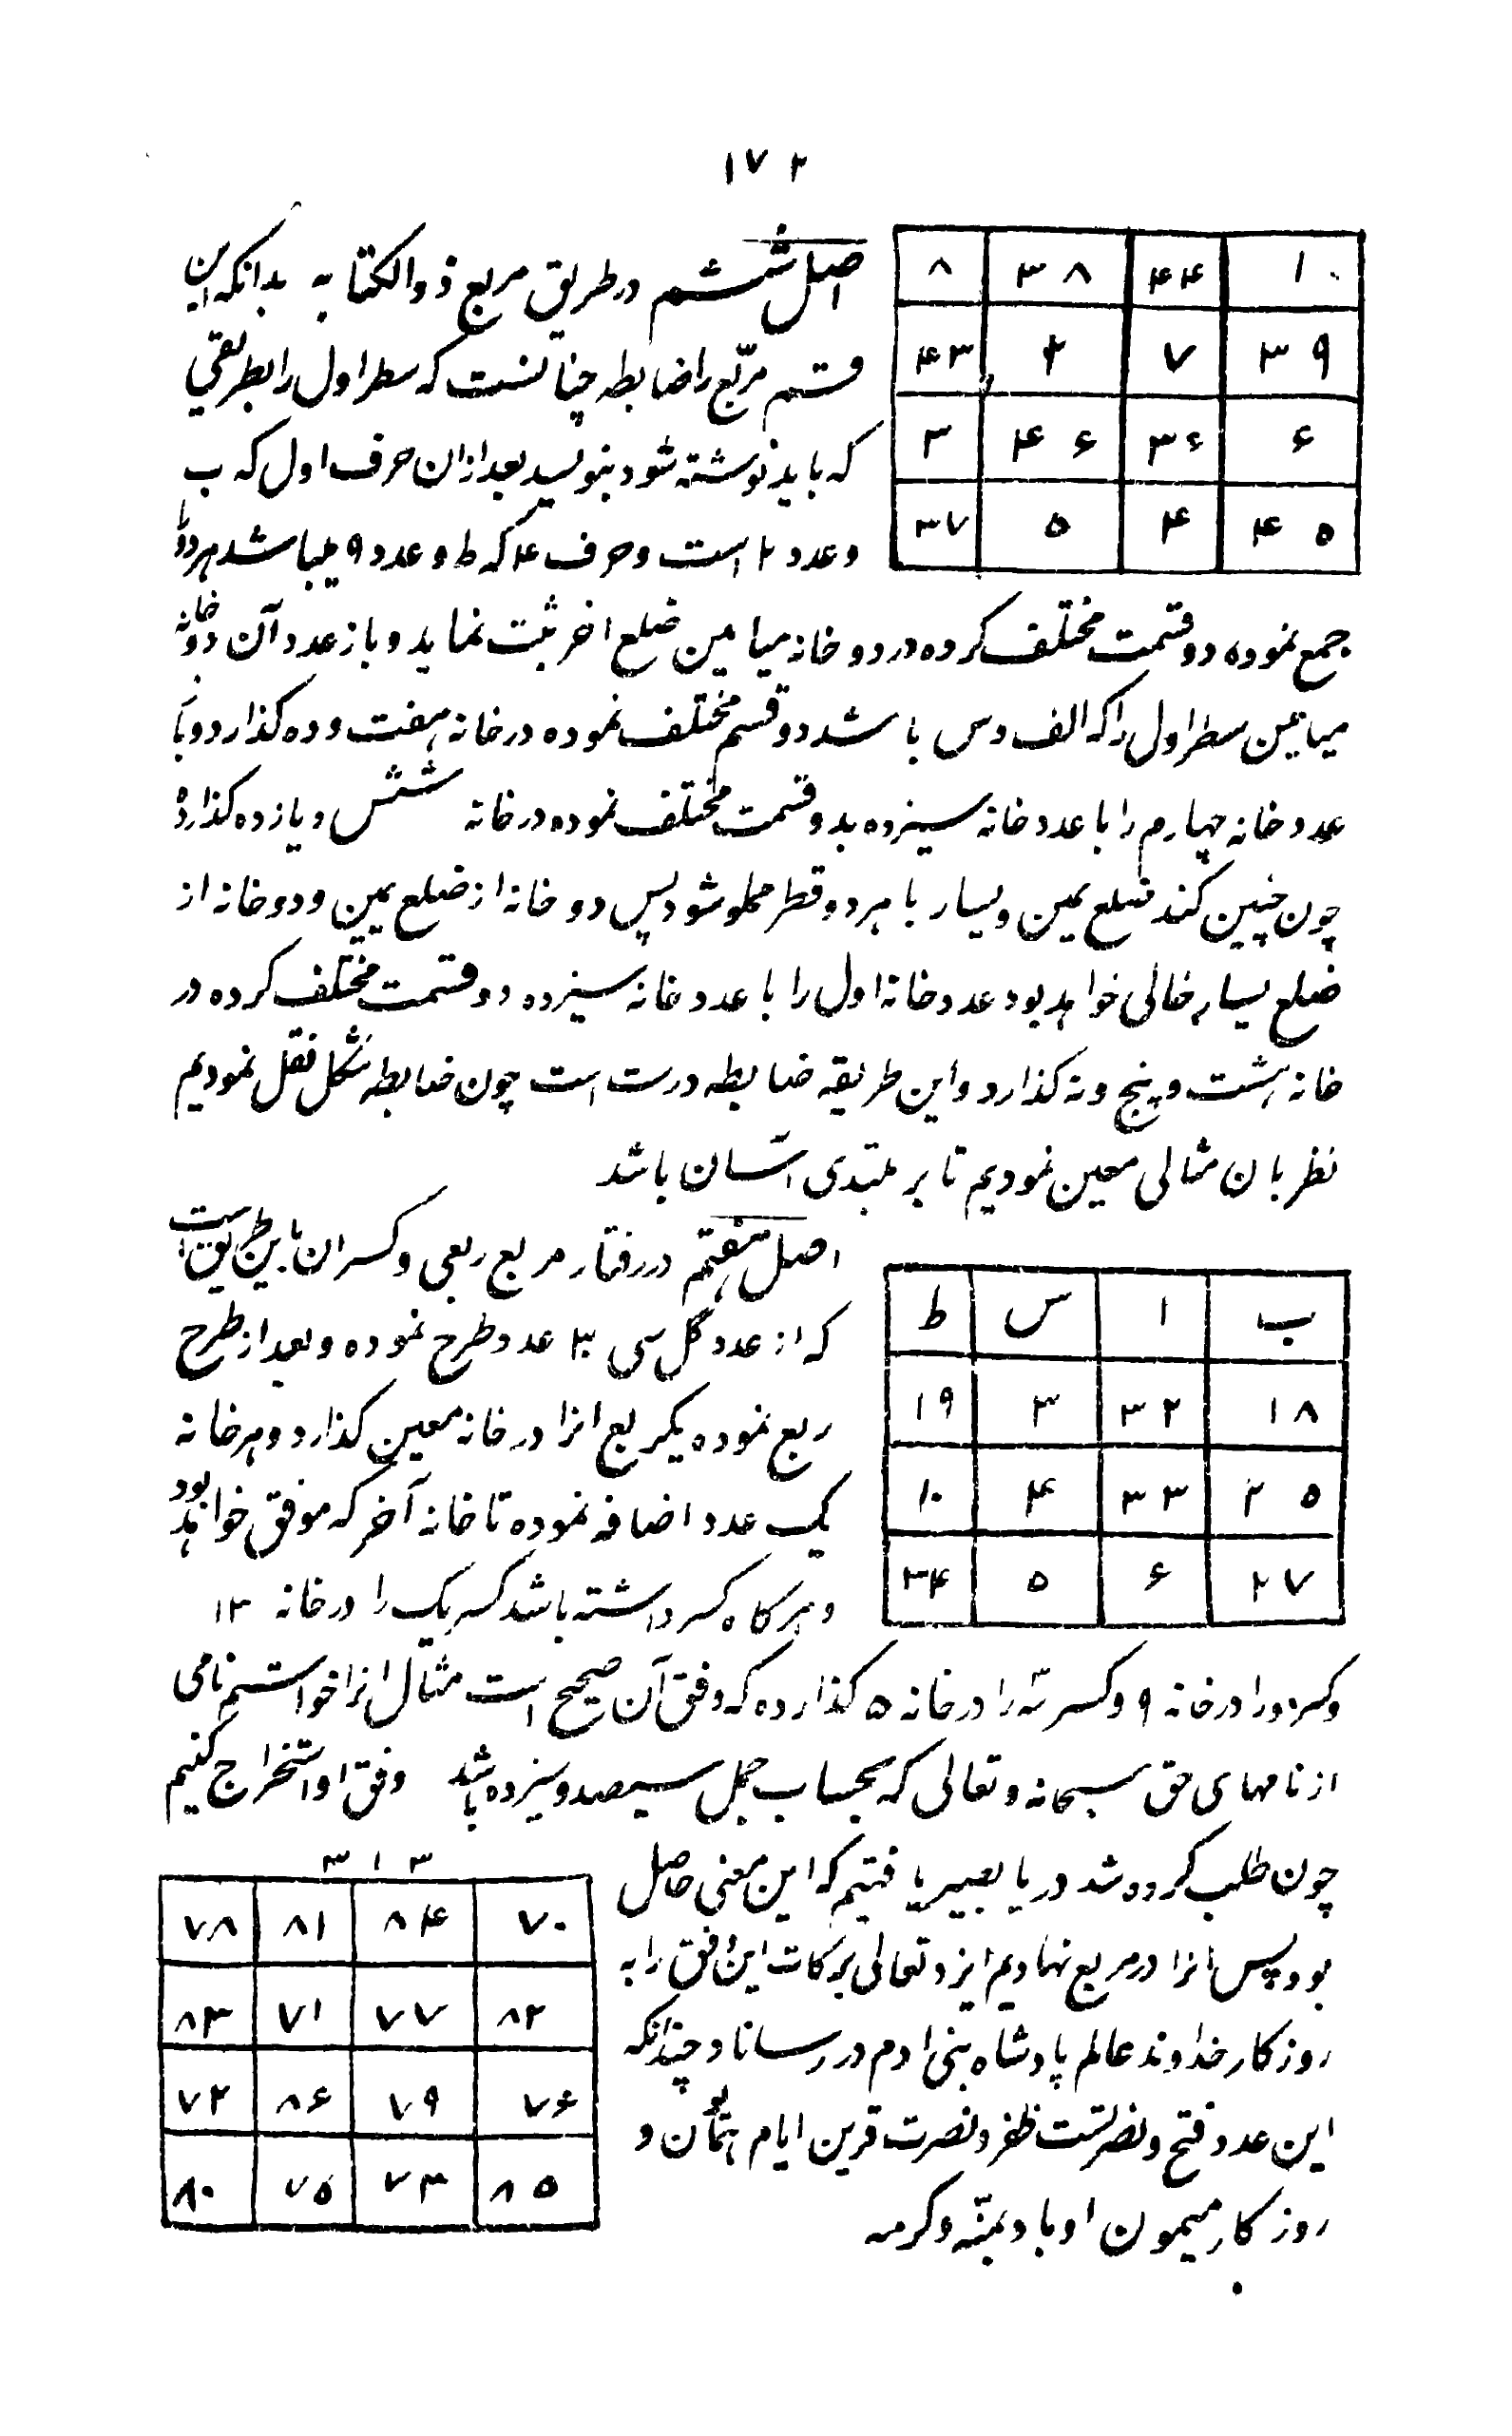 ۱۷۲
۱۰ ۴۴ ۳۸ ۸
۳۹ ۷ ۲ ۴۳
۶ ۳۶ ۴۶ ۳
۴۵ ۴ ۵ ۳۷
اصل ششم در طریق مربع ذوالکتابه بدانکه این
قسم مربّع را ضابطه چنانست که سطر اول را بطریقی
که باید نوشته شود بنویسد بعد ازان حرف اول که ب
و عدد ۲ است و حرف ۴ که ط و عدد ۹ میباشد هر دو را
جمع نموده دو قسمت مختلف کرده در دو خانه میامین ضلع اخر ثبت نماید و باز عدد آن دو خانه
میامین سطر اول را که الف و س باشد دو قسم مختلف نموده در خانه هفت و ده کذارد و با
عدد خانه چهارم را با عدد خانه سیزده بدو قسمت مختلف نموده در خانه شش و یازده کذارد
چون چنین کند ضلع یمین و یسار با هر دو قطر مملو شود پس دو خانه از ضلع یمین و دو خانه از
ضلع یسار خالی خواهد بود عدد خانه اول را با عدد خانه سیزده دو قسمت مختلف کرده در
خانه هشت و پنج و نه کذارد و این طریقه ضابطه درست است چون ضابطه شکل نقل نمودیم
نظر بان مثالی معین نمودیم تا بر مبتدی اسان باشد
ب ا س ط
۱۸ ۳۲ ۳ ۱۹
۲۵ ۳۳ ۴ ۱۰
۲۷ ۶ ۵ ۳۴
اصل هفتم در رفتار مربع ربعی و کسر ان باین طریق است
که از عدد کل سی ۳۰ عدد طرح نموده و بعد از طرح
ربع نموده یکربع انرا در خانه معین کذارد و هر خانه
یک عدد اضافه نموده تا خانه آخر که موفق خواهد بود
و هر کاه کسر داشته باشد کسر یک را در خانه ۱۳
و کسر دو را در خانه ۹ و کسر سه را در خانه ۵ کذارده که وفق آن صحیح است مثال انرا خواستیم نامی
از نامهای حق سبحانه و تعالی که بحساب جمل سیصد و سیزده باشد وفق او استخراج کنیم
چون طلب کرده شد در یا بصیر یافتیم که این معنی حاصل
بود پس انرا در مربع نهادیم ایزد تعالی برکات این وفق را به
روزکار خداوند عالم پادشاه بنی ادم در رساناد چندانکه
این عدد فتح و نصرتست ظفر و نصرت قرین ایام و
روزکار میمون او باد بمنّه و کرمه
۳۱۳
۷۰ ۸۴ ۸۱ ۷۸
۸۲ ۷۷ ۷۱ ۸۳
۷۶ ۷۹ ۸۶ ۷۲
۸۵ ۷۳ ۷۵ ۸۰